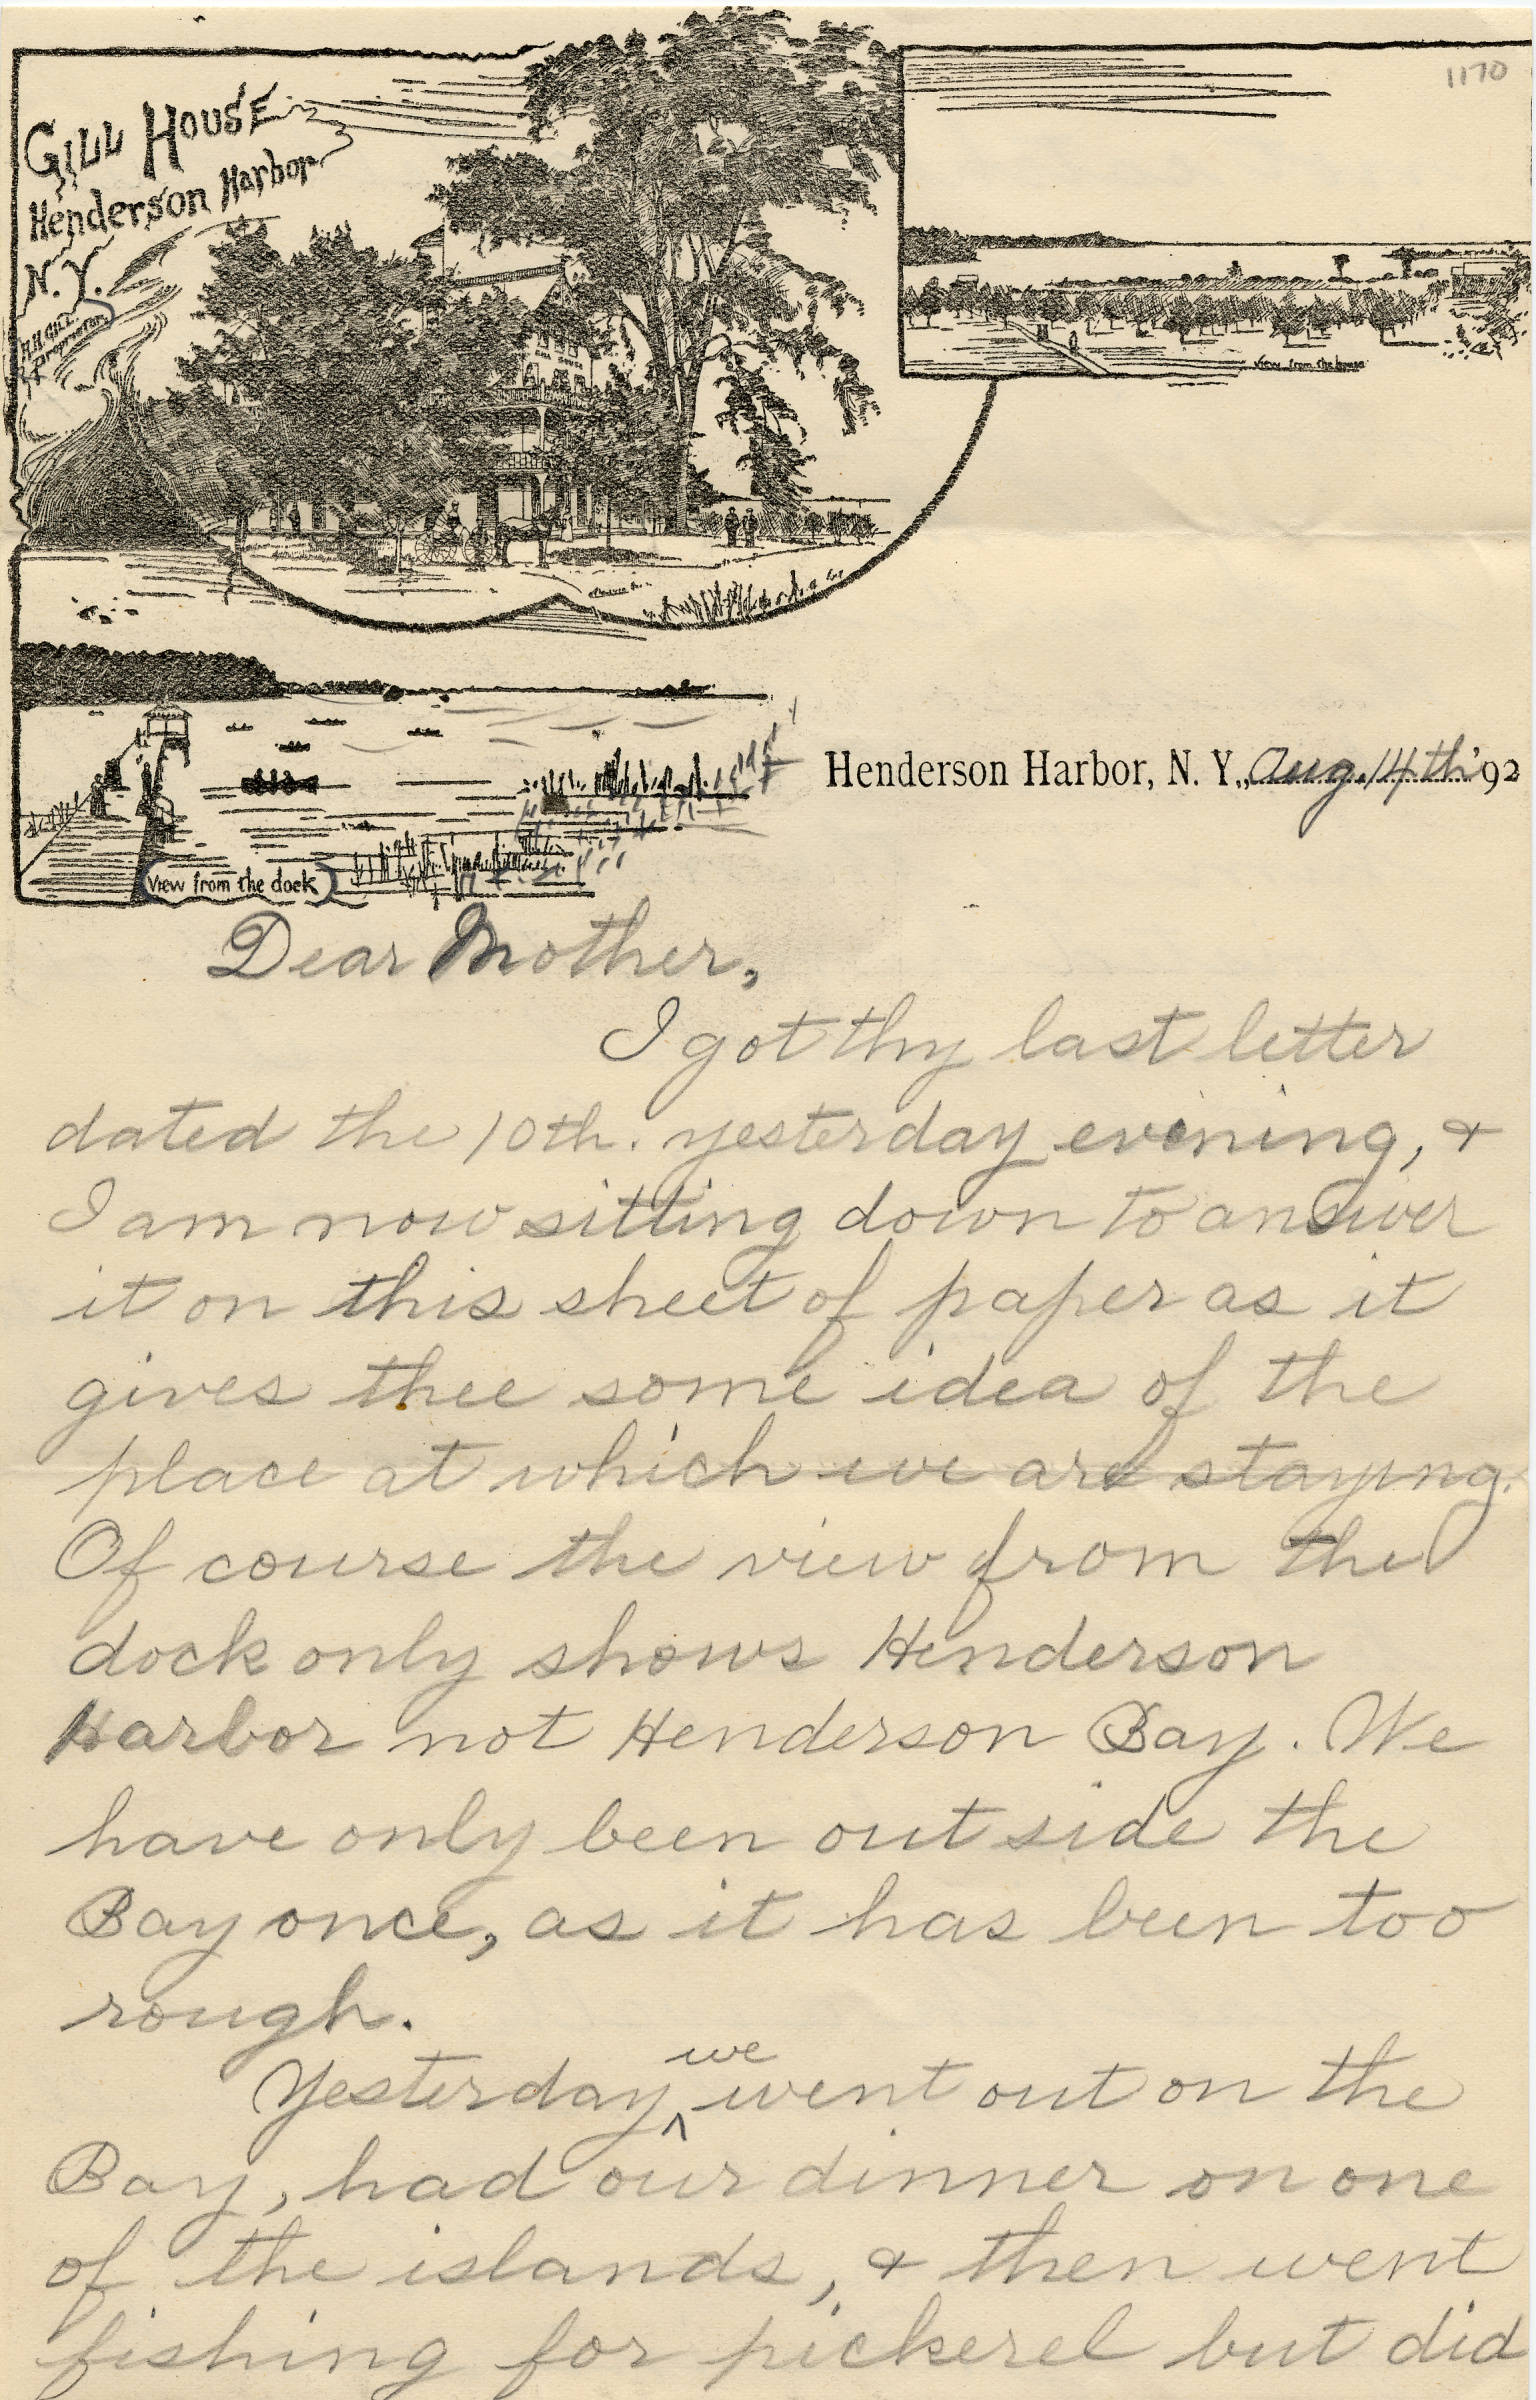 1170
GILL HOUSE
Henderson Harbor
N. Y.
H.H. GILL
Proprietor
GILL HOUSE
View from the house
View from the dock
Henderson Harbor, N. Y., Aug. 14th '92
Dear Mother,
I got thy last letter
dated the 10th. yesterday evening, &
I am now sitting down to answer
it on this sheet of paper as it
gives thee some idea of the
place at which we are staying.
Of course the view from the
dock only shows Henderson
Harbor not Henderson Bay. We
have only been outside the
Bay once, as it has been too
rough.
Yesterday ^we went out on the
Bay, had our dinner on one
of the islands, & then went
fishing for pickerel but did